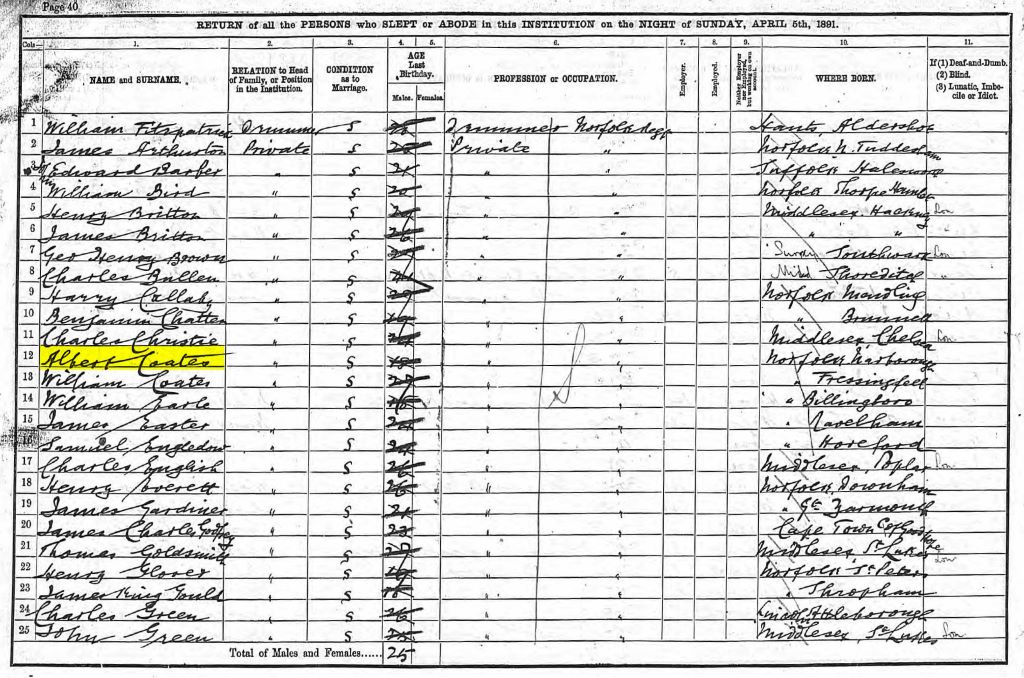 Page 40
RETURN of all the PERSONS who SLEPT or ABODE in this INSTITUTION on the NIGHT of SUNDAY, APRIL 5th, 1891.
Cols— 1. 2. 3. 4. 5. 6. 7. 8. 9. 10. 11.
NAME and SURNAME. RELATION to Head of Family, or Position in the Institution. CONDITION as to Marriage. AGE Last Birthday. Males. Females. PROFESSION or OCCUPATION. Employer. Employed. Neither Employer nor Employed, but working on own account. WHERE BORN. If (1) Deaf-and-Dumb. (2) Blind. (3) Lunatic, Imbecile or Idiot.
1 William Fitzpatrick Drummer S Drummer Norfolk Regt Hants, Aldershot
2 James Arthurton Private S Private " Norfolk N. Tuddenham
3 Edward Barber " S 21 " " Suffolk Halesworth
4 William Bird " S 20 " " Norfolk Thorpe Hamlet
5 Henry Britton " S " " Middlesex, Hackney Lon
6 James Britton " S 26 " " " "
7 Geo Henry Brown " S " " Surrey Southwark Lon
8 Charles Bullen " S " " Midd Shoreditch "
9 Harry Callaby " S " " Norfolk
10 Benjamin Chatten " S 19 " " "
11 Charles Christie " S " " Middlesex, Chelsea Lon
12 Albert Coates " S 18 " " Norfolk Narborough
13 William Coates " S " " " Fressingfell
14 William Earle " S " " " Billingboro
15 James Easter " S " " "
16 Samuel Engledow " S " " " Horsford
17 Charles English " S 26 " " Middlesex, Poplar Lon
18 Henry Everett " S 26 " " Norfolk, Downham
19 James Gardiner " S 21 " " " Gt Yarmouth
20 James Charles Godfrey " S 23 " " Cape Town C of Good Hope
21 Thomas Goldsmith " S " " Middlesex, St Lukes Lon
22 Henry Glover " S 19 " " Norfolk St Peters
23 James King Gould " S 18 " " " Shropham
24 Charles Green " S 26 " " Lincoln Attleborough
25 John Green " S " " Middlesex, St Lukes Lon
Total of Males and Females...... 25